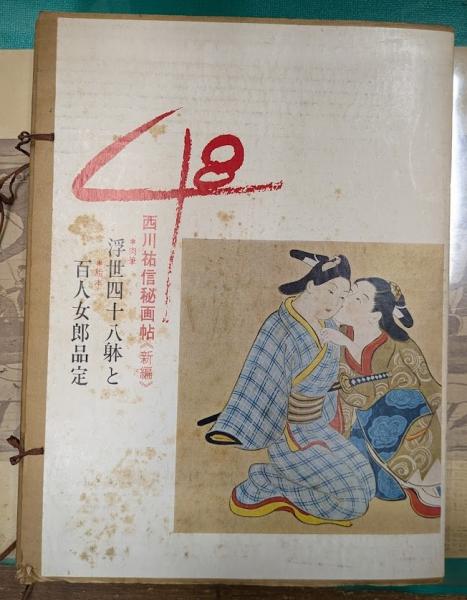 48
西川祐信秘画帖《新編》
*肉筆
浮世四十八躰と
*絵本
百人女郎品定